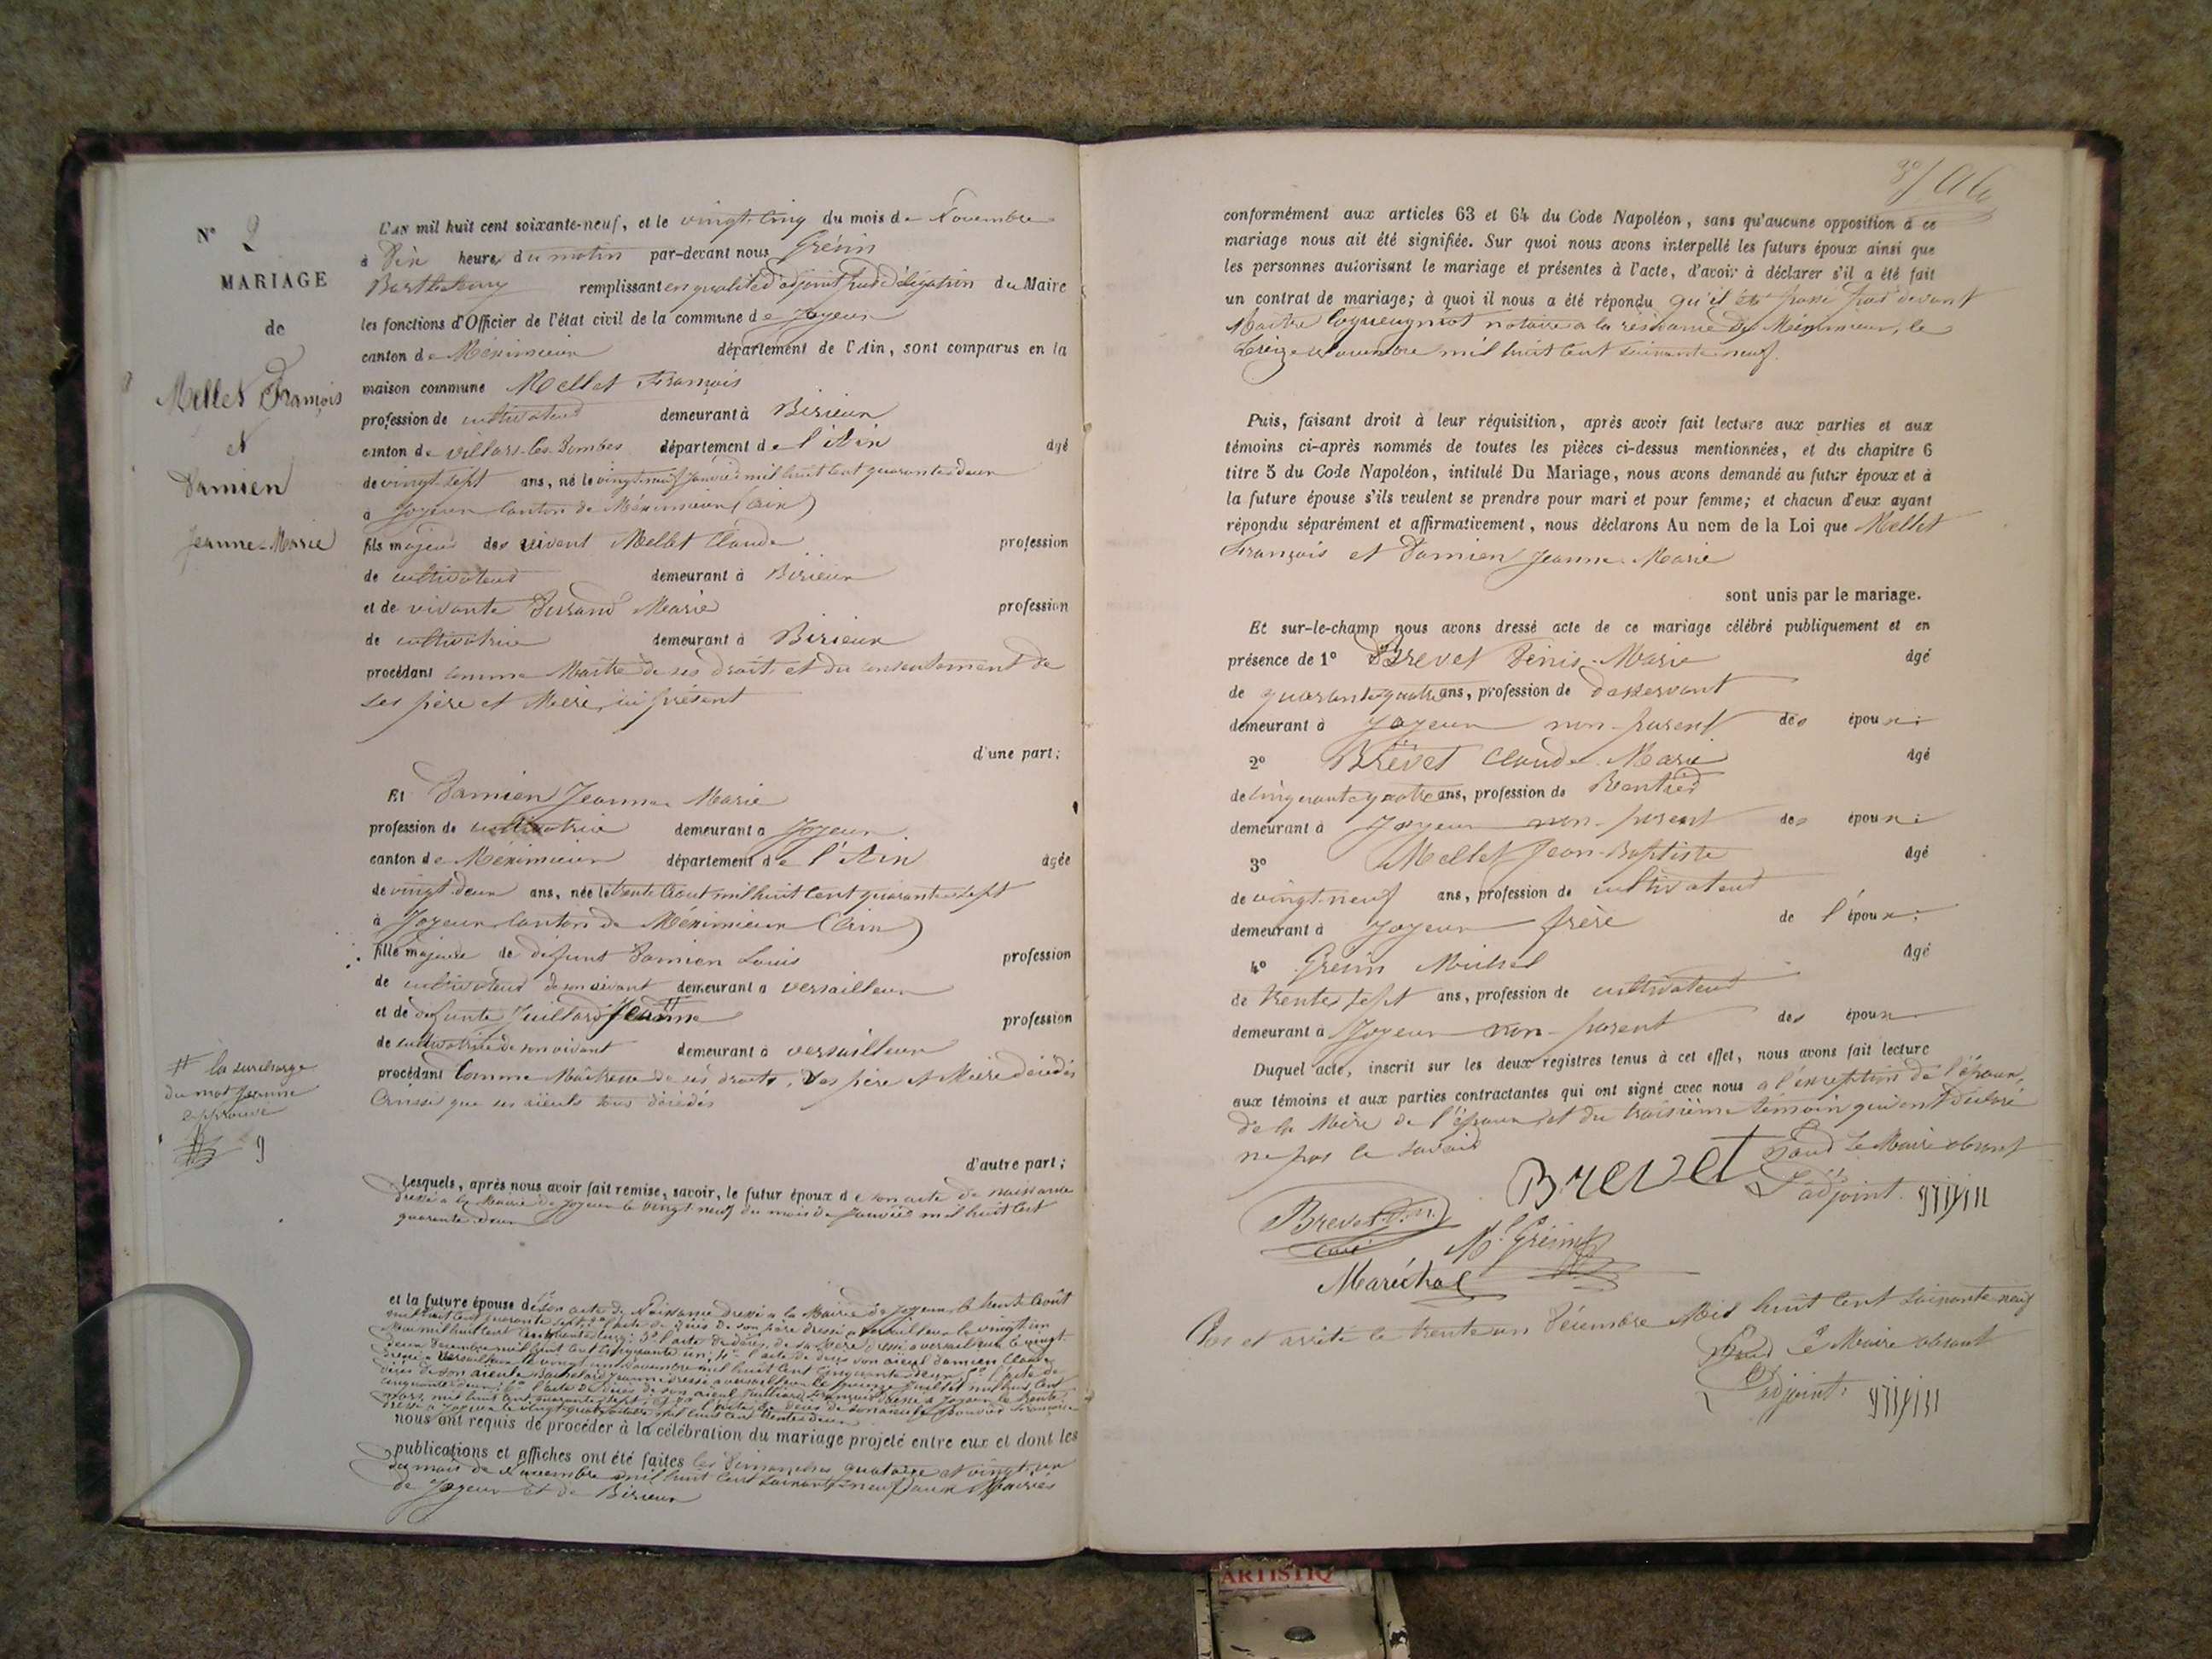 N° 2
MARIAGE
de
Mellet François
et
Damien
Jeanne-Marie
L'AN mil huit cent soixante-neuf, et le vingt-cinq du mois de Novembre
à Dix heures du matin par-devant nous Grésin
Barthélemy remplissant en qualité d'adjoint par délégation du Maire
les fonctions d'Officier de l'état civil de la commune de Joyeux
canton de Méximieux département de l'Ain, sont comparus en la
maison commune Mellet François
profession de cultivateur demeurant à Birieux
canton de villars-les-Dombes département de l'Ain âgé
de vingt-sept ans, né le vingt-neuf Janvier mil huit cent quarante deux
à Joyeux Canton de Méximieux (Ain)
fils majeur des vivent Mellet Claude profession
de cultivateur demeurant à Birieux
et de vivante Durand Marie profession
de cultivatrice demeurant à Birieux
procédant comme Maître de ses droits et du consentement de
ses père et Mère, ici présent
d'une part;
Et Damien Jeanne Marie
profession de cultivatrice demeurant à Joyeux
canton de Méximieux département de l'Ain âgée
de vingt deux ans, née le trente Août mil huit cent quarante sept
à Joyeux Canton de Méximieux (Ain)
fille majeure de défunt Damien Louis profession
de cultivateur de son vivant demeurant à versailleux
et de défunte Juillard Jeanne profession
de cultivatrice de son vivant demeurant à versailleux
procédant Comme Maîtresse de ses droits, ses père et Mère décédés
Ainsi que ses aïeuls tous décédés
# la surcharge
du mot Jeanne
approuvé
d'autre part;
Lesquels, après nous avoir fait remise, savoir, le futur époux de son acte de naissance
dressé à la Mairie de Joyeux le vingt neuf du mois de Janvier mil huit cent
quarante deux
et la future épouse de 1° son acte de Naissance dressé à la Mairie de Joyeux le trente Août
mil huit cent quarante sept; 2° l'acte de décès de son père dressé à versailleux le vingt un
Mai mil huit cent cinquante cinq; 3° l'acte de décès de sa Mère dressé à versailleux le vingt
deux Décembre mil huit cent cinquante un; 4° l'acte de décès son aïeul Damien Claude
dressé à versailleux le vingt un Novembre mil huit cent cinquante deux; 5° l'acte de
décès de son aïeule Bachelard Jeanne dressé à versailleux le quinze Juillet mil huit cent
cinquante deux; 6° l'acte de décès de son aïeul Juillard François dressé à Joyeux le trente
mars mil huit cent quarante sept; et 7° l'acte de décès de son aïeule
dressé à Joyeux le vingt quatre mil huit cent trente deux
nous ont requis de procéder à la célébration du mariage projeté entre eux et dont les
publications et affiches ont été faites les Dimanches quatorze et vingt-un
du mois de Novembre mil huit cent soixante-neuf aux Mairies
de Joyeux et de Birieux
conformément aux articles 63 et 64 du Code Napoléon, sans qu'aucune opposition à ce
mariage nous ait été signifiée. Sur quoi nous avons interpellé les futurs époux ainsi que
les personnes autorisant le mariage et présentes à l'acte, d'avoir à déclarer s'il a été fait
un contrat de mariage; à quoi il nous a été répondu qu'il été passé par devant
Maître Coqueugniot notaire à la résidence de Méximieux, le
treize Novembre mil huit cent soixante neuf.
Puis, faisant droit à leur réquisition, après avoir fait lecture aux parties et aux
témoins ci-après nommés de toutes les pièces ci-dessus mentionnées, et du chapitre 6
titre 5 du Code Napoléon, intitulé Du Mariage, nous avons demandé au futur époux et à
la future épouse s'ils veulent se prendre pour mari et pour femme; et chacun d'eux ayant
répondu séparément et affirmativement, nous déclarons Au nom de la Loi que Mellet
François et Damien Jeanne-Marie
sont unis par le mariage.
Et sur-le-champ nous avons dressé acte de ce mariage célébré publiquement et en
présence de 1° Brevet Denis-Marie âgé
de quarante-quatre ans, profession de desservant
demeurant à Joyeux non-parent des époux;
2° Brevet Claude-Marie âgé
de cinquante quatre ans, profession de Rentier
demeurant à Joyeux non-parent des époux;
3° Mellet Jean-Baptiste âgé
de vingt-neuf ans, profession de cultivateur
demeurant à Joyeux frère de l'époux;
4° Grésin Michel âgé
de trente sept ans, profession de cultivateur
demeurant à Joyeux non-parent des époux
Duquel acte, inscrit sur les deux registres tenus à cet effet, nous avons fait lecture
aux témoins et aux parties contractantes qui ont signé avec nous à l'exception de l'époux,
de la Mère de l'époux et du troisième témoin qui ont déclaré
ne pas le savoir
Brevet
Pour le Maire absent
L'adjoint
Brevet D. M.
curé
M. Grésin
Maréchal
Clos et arrêté le trente un Décembre Mil huit cent soixante neuf
Pour Le Maire absent
L'adjoint:
ARTISTIQ